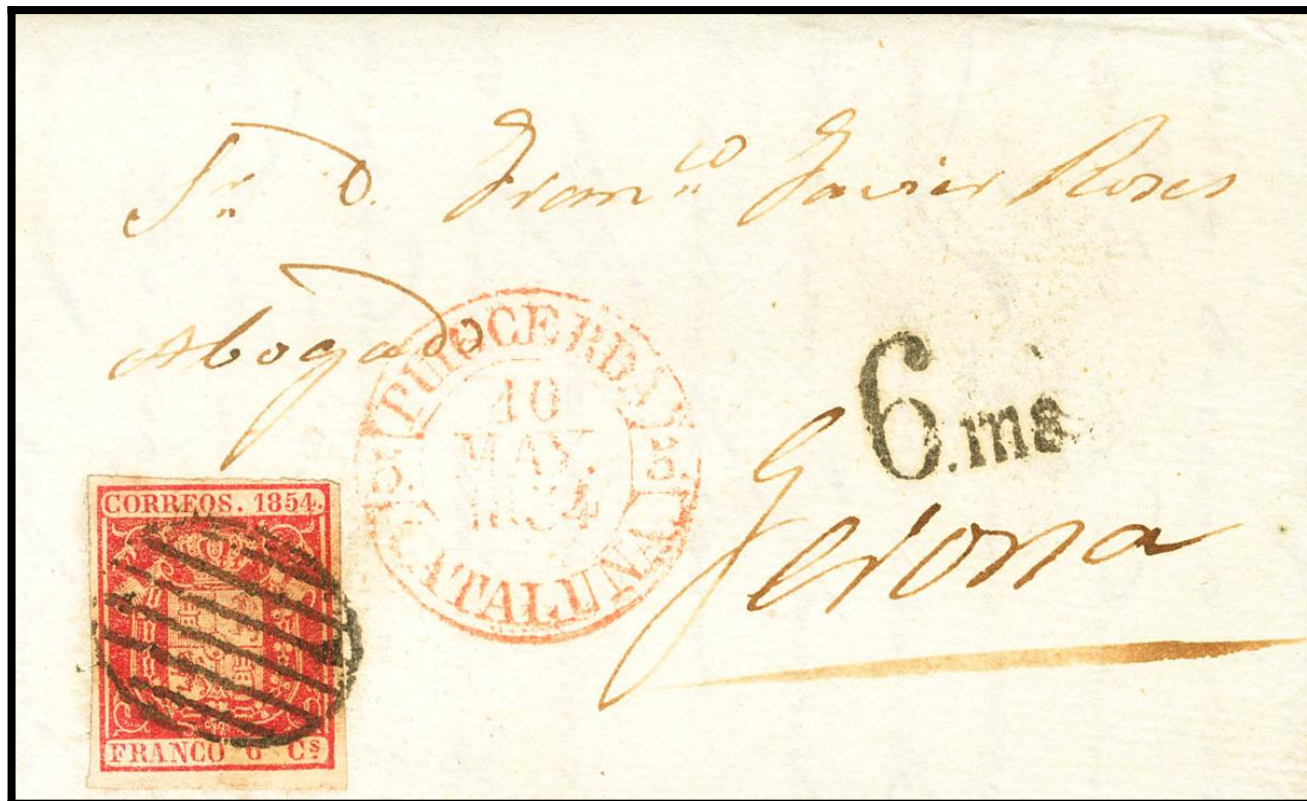 Sr. D. Franco Javier Roses
Abogado
PUIGCERDA
10
MAY.
1854
CATALUÑA
6.ms
Gerona
CORREOS. 1854.
FRANCO 6 Cs